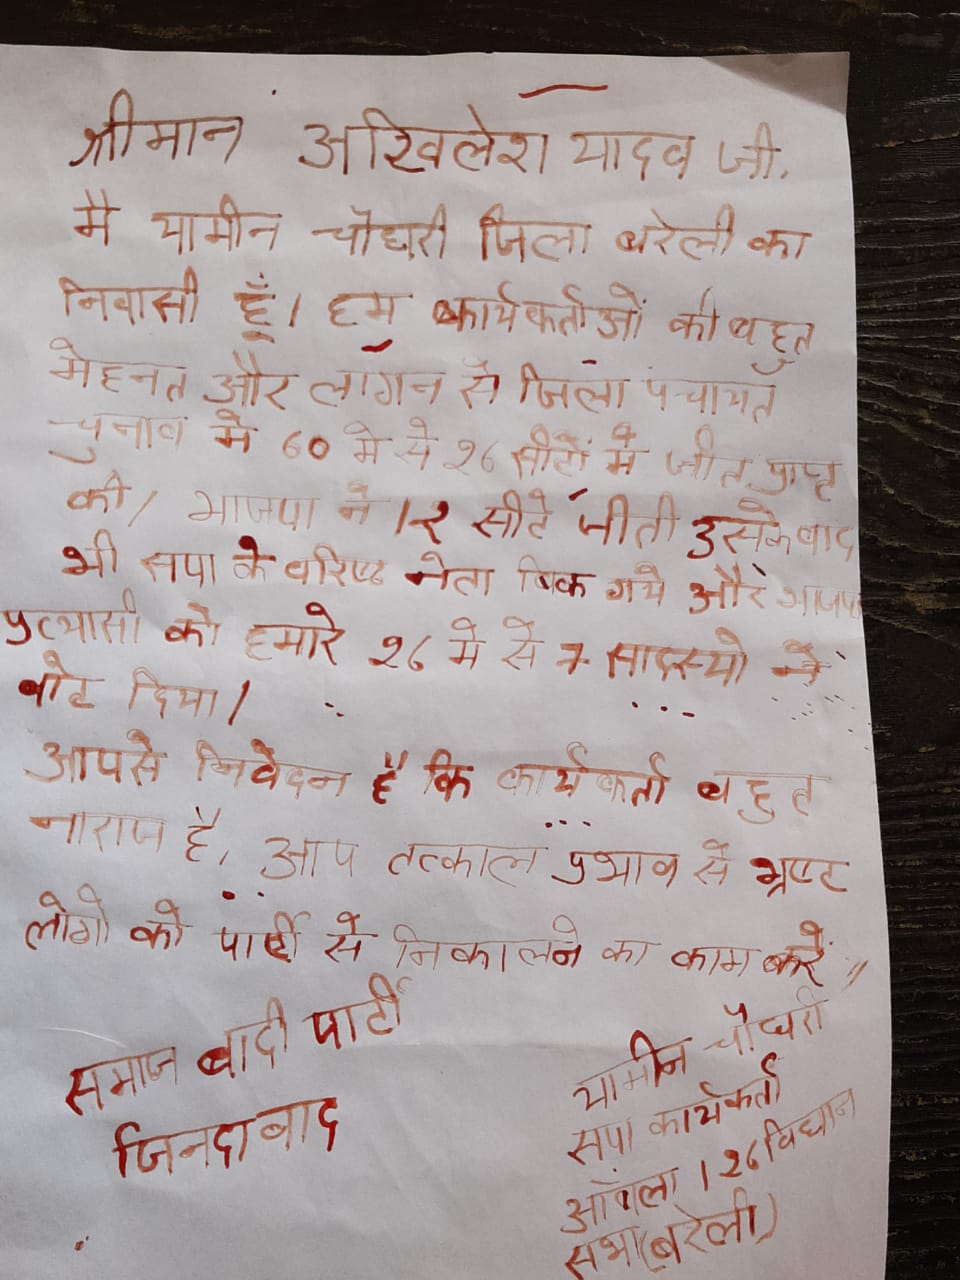 श्रीमान अखिलेश यादव जी.
मै यामीन चौधरी जिला बरेली का
निवासी हूँ। हम कार्यकर्ताओं की बहुत
मेहनत और लागन से जिला पंचायत
चुनाव मे 60 मे से 26 सीटों मे जीत प्राप्त
की। भाजपा ने 12 सीटे जीती उसके बाद
भी सपा के वरिष्ठ नेता बिक गये और भाजपा
प्रत्यासी को हमारे 26 मे से 7 सादस्यो ने
वोट दिया।
आपसे निवेदन है कि कार्यकर्ता बहुत
नाराज है, आप तत्काल प्रभाव से भ्रष्ट
लोगो को पार्टी से निकालने का काम करें॥
समाज बादी पार्टी
जिनदाबाद
यामीन चौधरी
सपा कार्यकर्ता
आँवला 126 विधान
सभा (बरेली)